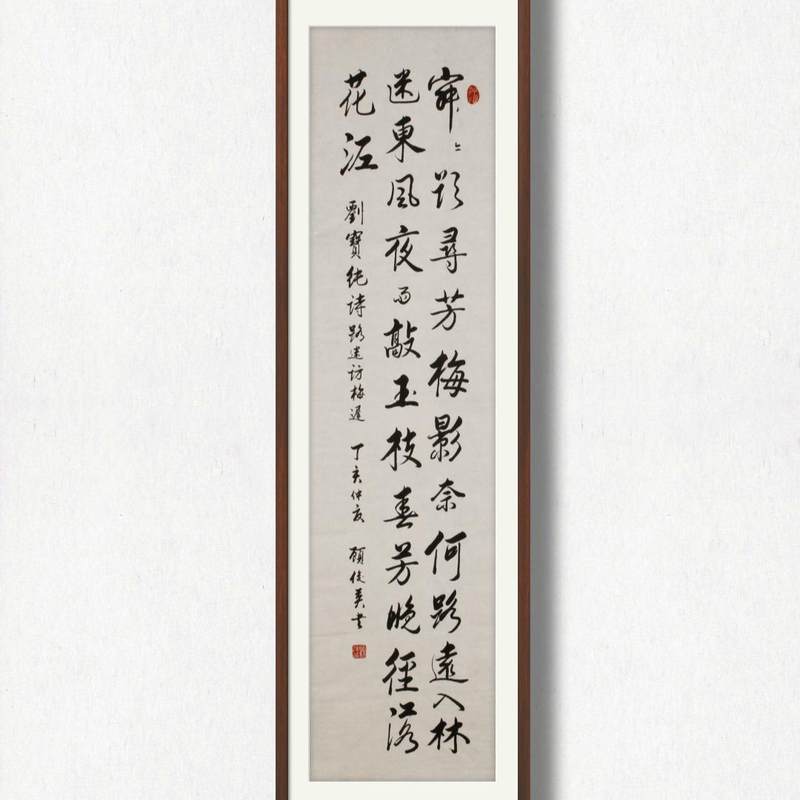 尋芳梅影奈何路遠入林
迷東風夜雨敲玉枝春芳晚徑落
花江
劉寶純詩路遠訪梅遲 丁亥仲夏 顧俊英書